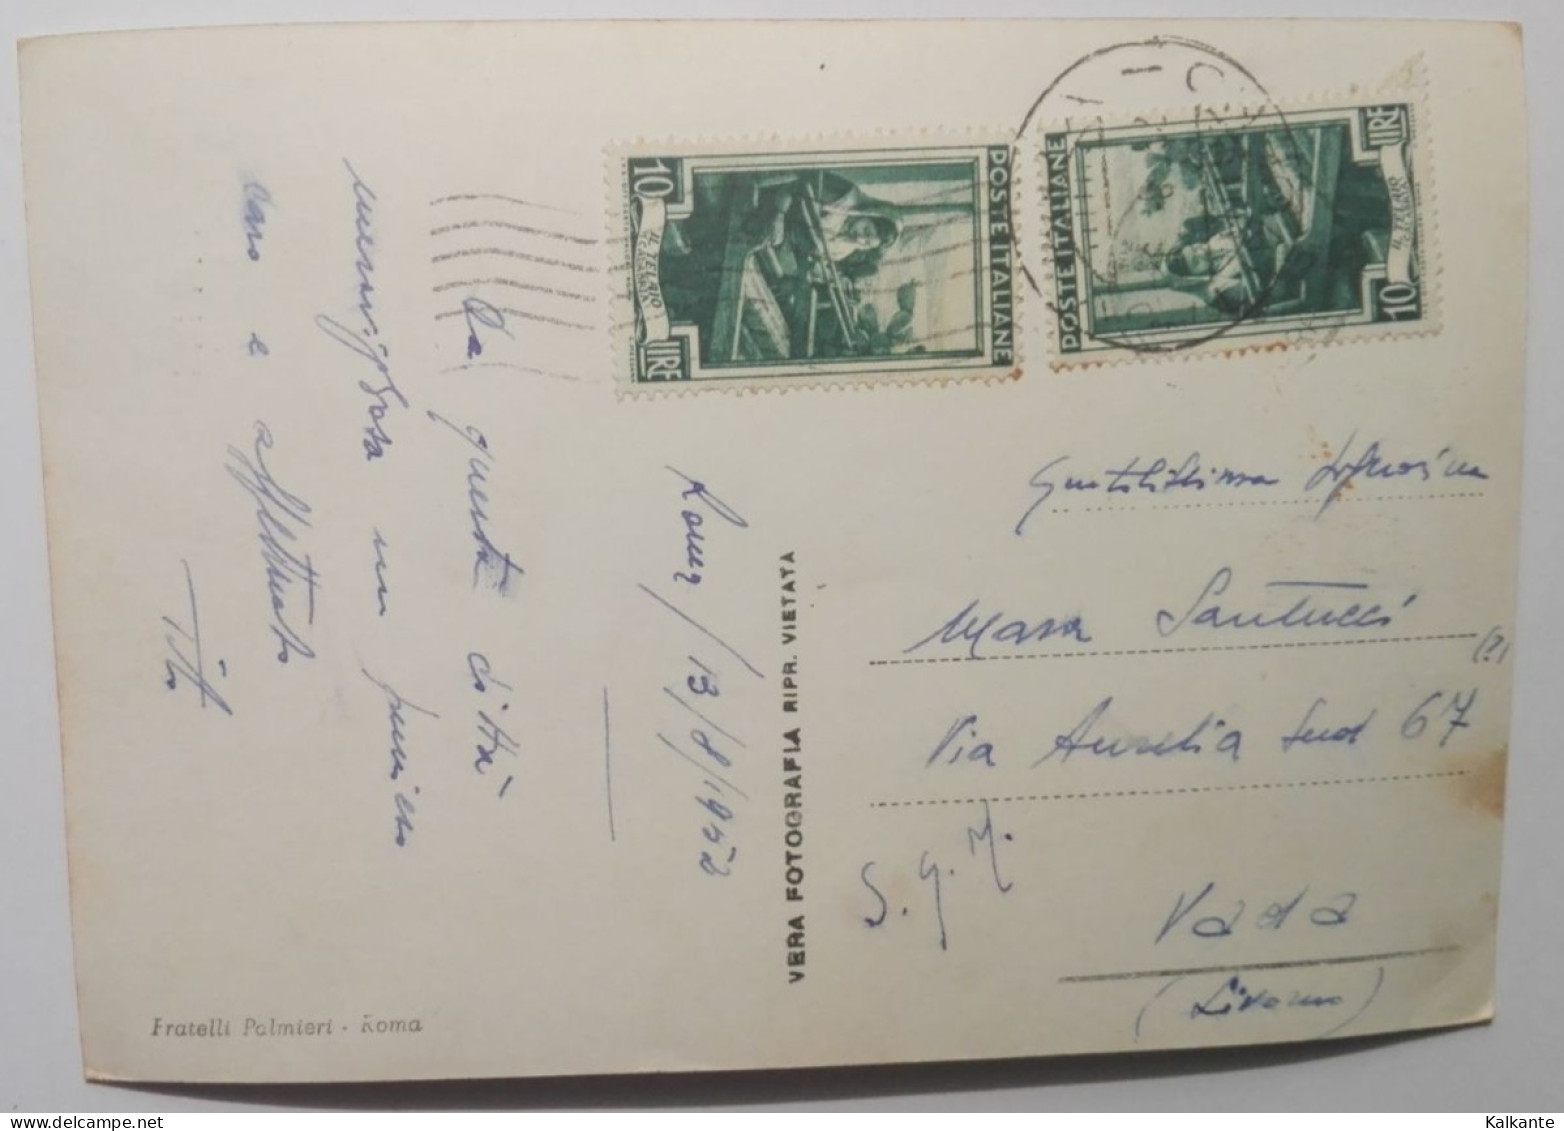 Roma, 13/8/1952
Da questa città
meravigliosa un pensiero
caro e affettuoso
Tito
VERA FOTOGRAFIA RIPR. VIETATA
Fratelli Palmieri - Roma
10 LIRE
IL TELAIO
POSTE ITALIANE
POSTE ITALIANE
10 LIRE
IL TELAIO
Gentilissima Signorina
Mara Santucci
(?)
Via Aurelia Sud 67
S.G.M.
Vada
(Livorno)
Kalkante